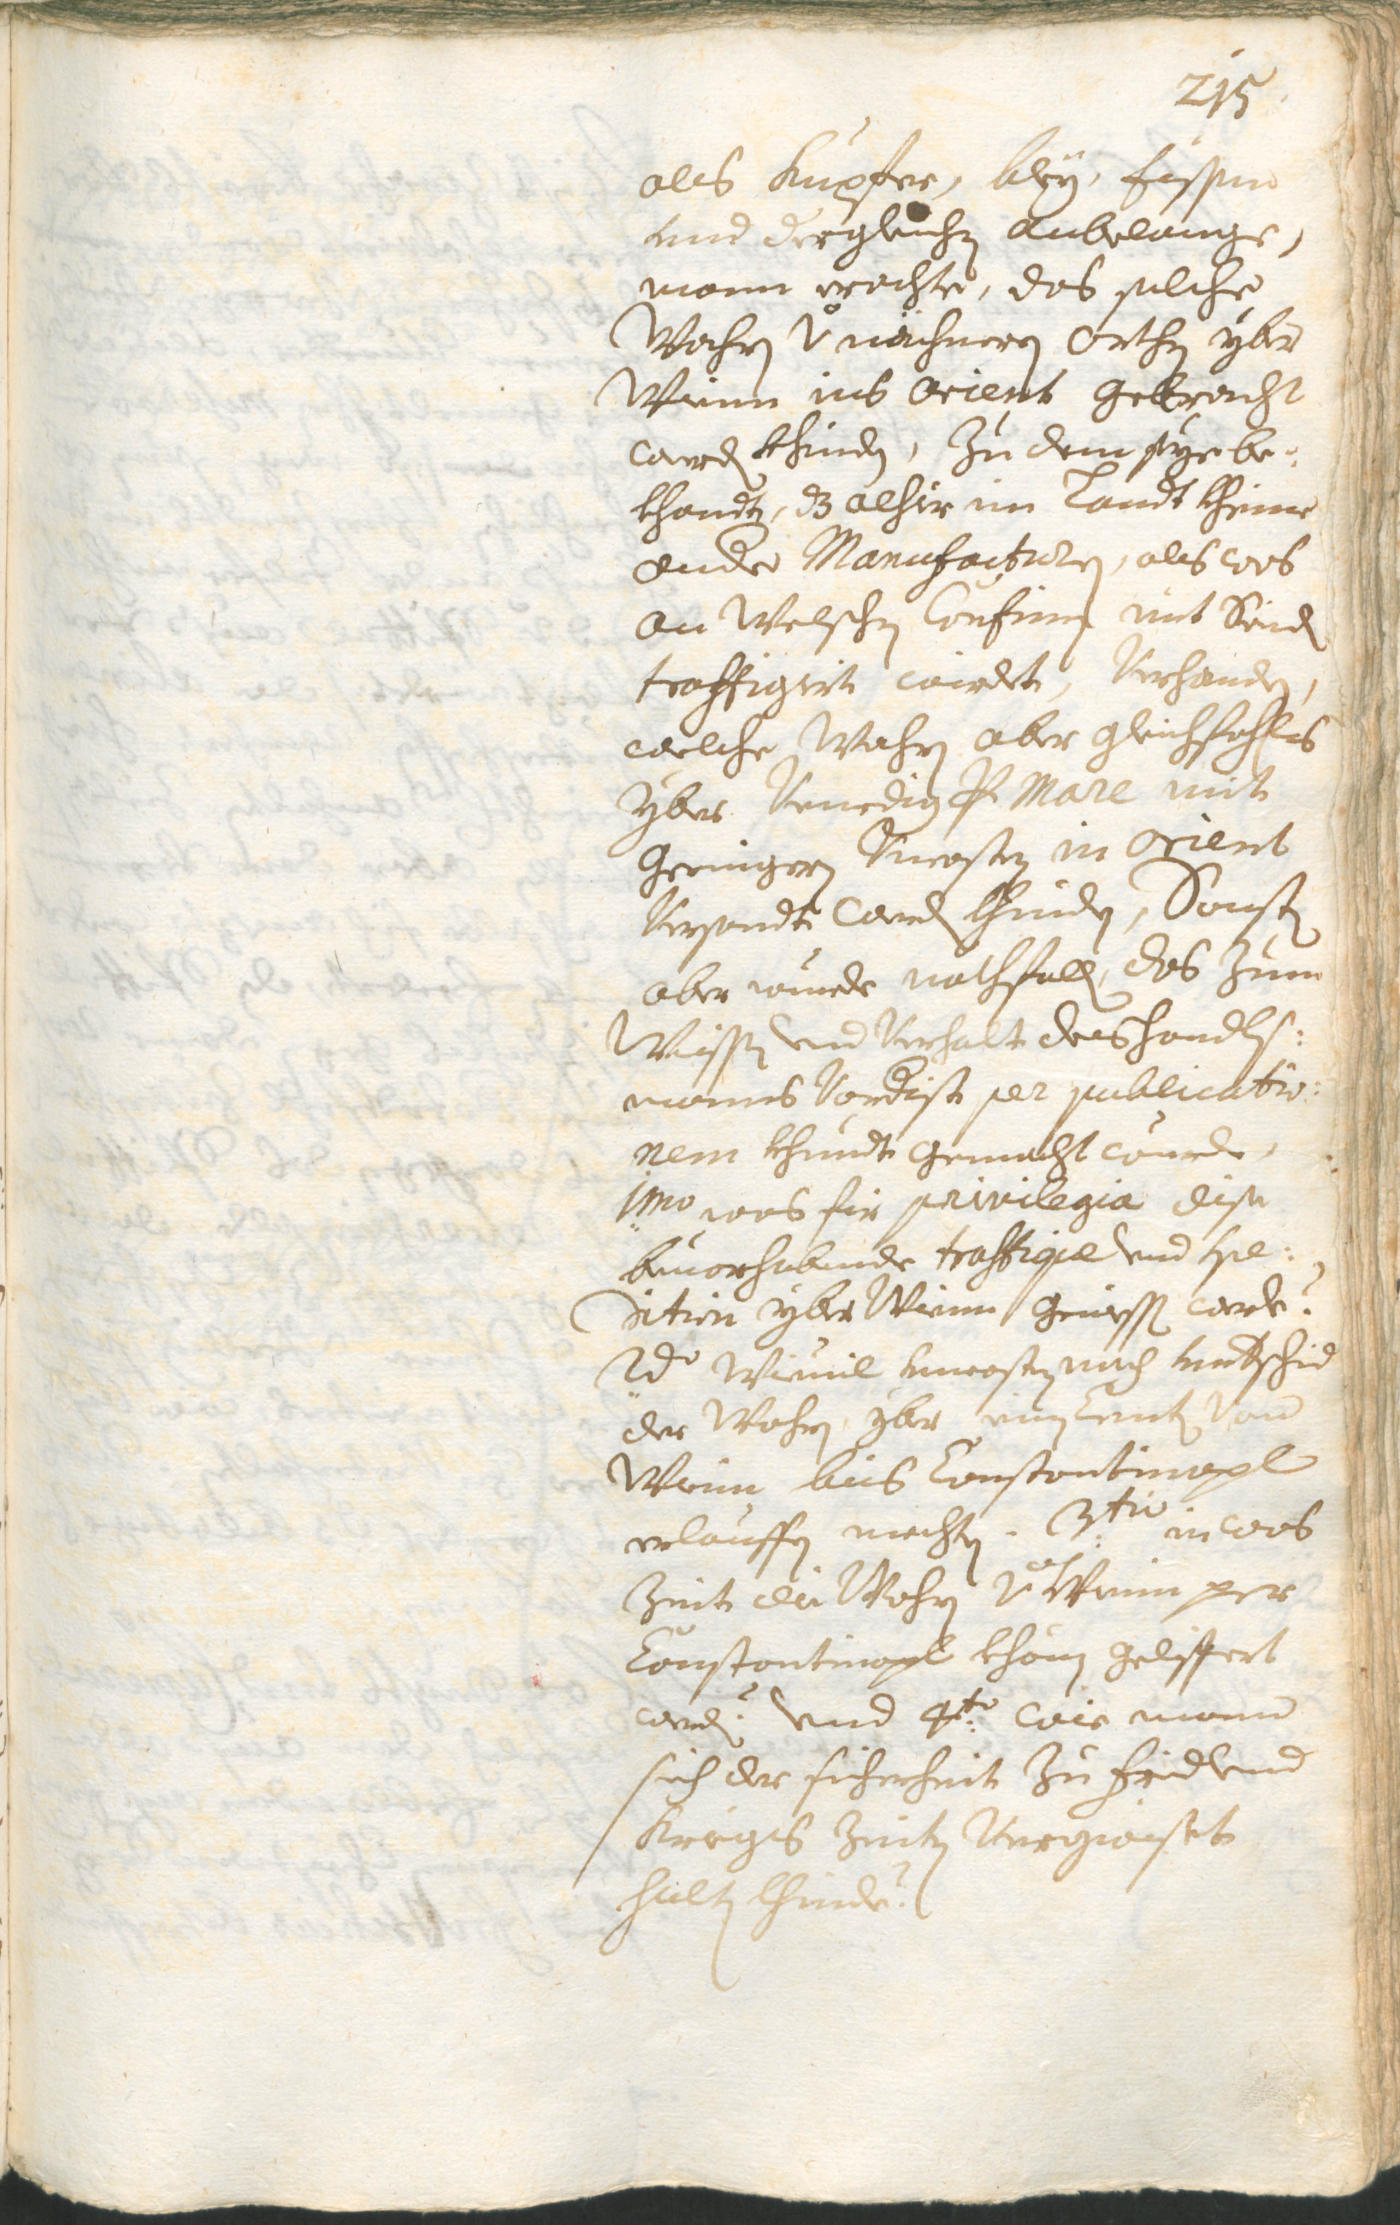 215
als Kupfer, bley, Eissen
und dergleichen anbelange,
mann erachte, das solche
Wahren von nächnern Orthen yber
Wienn ins Orient gebracht
werden khinden, Zu dem seye be-
khandt, dz alhier im Landt kheine
andere Manufacturen, als was
an Welschen Confinen mit Seiden
traffigiert wirdet, Verhanden,
welche Wahren aber gleichfahls
yber Venedig per Mare mit
geringern Uncosten in Orient
Versandt werden khinden, Sonsten
aber wurde nothfallen, das Zum
Wissen und Verhalt des Handls:
manns Vordist per publicatio:
nem khundt gemacht wurde,
1mo was fir privilegia dise
beuorhabende traffigie und Spe:
dition yber Wienn geniessen werde?
2do Wieuil uncosten nach Underschid
der Wahren yber ein Centen Von
Wienn biis Constantinopl
erlauffen mechten. 3tio in was
Zeit die Wahren von Wienn per
Constantinopl khönen geliffert
werden? und 4to wie mann
sich der sicherheit Zu Frid und
Kriegs Zeiten Vergwiset
halten khinde?